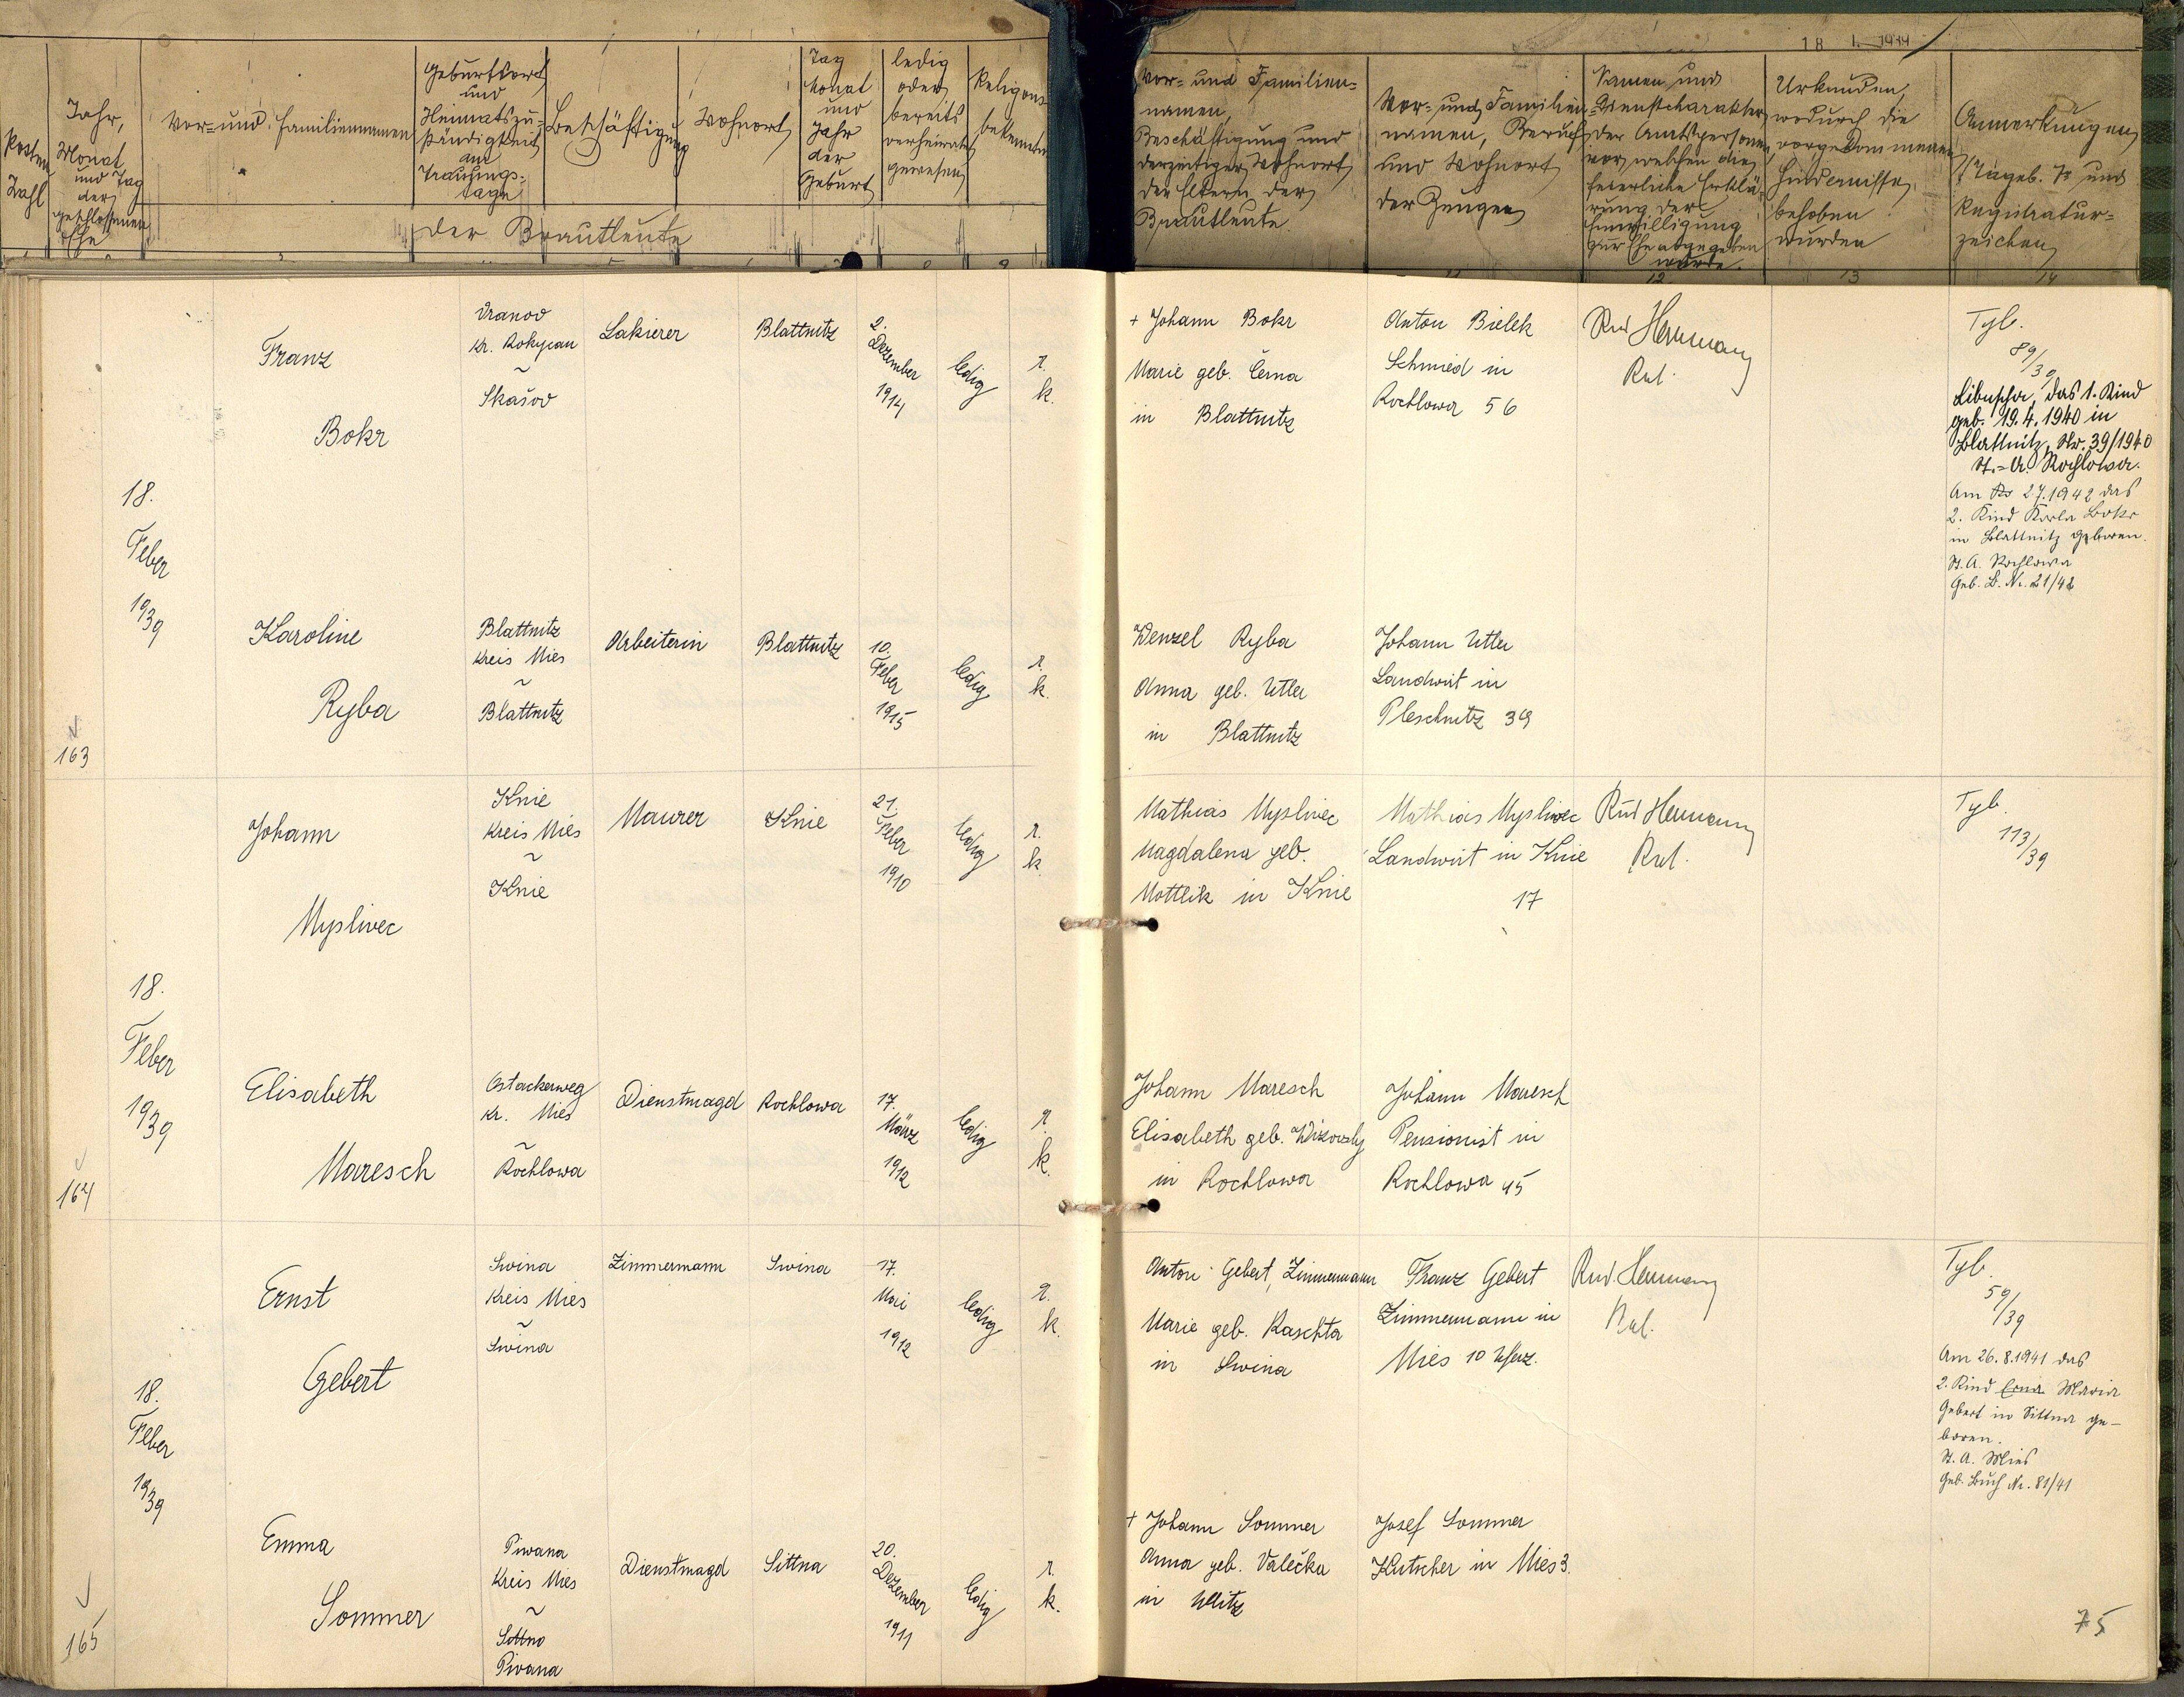 Posten
Zahl
Jahr,
Monat
und Tag
der
geschlossenen
Ehe
Vor- und Familiennamen
Geburtsort
und
Heimatszu-
ständigkeit
am
Trauungs-
tage
Beschäftigung
Wohnort
Tag
Monat
und
Jahr
der
Geburt
ledig
oder
bereits
verheiratet
gewesen
Religions
bekenntn
der Brautleute
18 1. 1939
Vor- und Familien-
namen,
Beschäftigung und
derzeitiger Wohnort
der Eltern der
Brautleute.
Vor- und Familien-
namen, Beruf
und Wohnort
der Zeugen
Namen und
Dienstcharakter
der Amtspersonen
vor welchen die
feierliche Erklä-
rung der
Einwilligung
zur Ehe abgegeben
wurde.
Urkunden,
wodurch die
vorgekommenen
Hindernisse
behoben
wurden
Anmerkungen
Tageb. Z. und
Registratur-
zeichen
12.
13
14
163
18.
Feber
1939
Franz
Bokr
Vranov
Kr. Rokycan
~
Skašov
Lakierer
Blattnitz
2.
Dezember
1914
ledig
r.
k.
+ Johann Bokr
Marie geb. Černa
in Blattnitz
Anton Bielek
Schmied in
Rochlowa 56
Rud Hermann
Tgb.
89/39
Libuscha, das 1. Kind
geb. 19.4.1940 in
Blattnitz, Nr. 39/1940
St.-A. Rochlowa.
Am 27.1942 das
2. Kind Karla Bokr
in Blattnitz geboren.
St. A. Rochlowa
Geb. B. Nr. 21/42
Karoline
Ryba
Blattnitz
Kreis Mies
~
Blattnitz
Arbeiterin
Blattnitz
10.
Feber
1915
ledig
r.
k.
Wenzel Ryba
Anna geb. Utler
in Blattnitz
Johann Utler
Landwirt in
Pleschnitz 39
164
18.
Feber
1939
Johann
Myslivec
Knie
Kreis Mies
~
Knie
Maurer
Knie
21.
Feber
1910
ledig
r.
k.
Mathias Myslivec
Magdalena geb.
Mottlik in Knie
Mathias Myslivec
Landwirt in Knie
17
Rud Hermann
Tgb.
113/39
Elisabeth
Maresch
Ostackerweg
Kr. Mies
~
Rochlowa
Dienstmagd
Rochlowa
17.
März
1912
ledig
r.
k.
Johann Maresch
Elisabeth geb. Wizovsky
in Rochlowa
Johann Maresch
Pensionist in
Rochlowa 45
165
18.
Feber
1939
Ernst
Gebert
Swina
Kreis Mies
~
Swina
Zimmermann
Swina
17.
Mai
1912
ledig
r.
k.
Anton Gebert, Zimmermann
Marie geb. Raschta
in Swina
Franz Gebert
Zimmermann in
Mies 10
Rud. Hermann
Tgb.
59/39
Am 26.8.1941 das
2. Kind Erna Maria
Gebert in Sittna ge-
boren.
St. A. Mies
Geb. Buch Nr. 81/41
Emma
Sommer
Piwana
Kreis Mies
~
Sittna
Piwana
Dienstmagd
Sittna
20.
Dezember
1911
ledig
r.
k.
+ Johann Sommer
Anna geb. Valečka
in Ullitz
Josef Sommer
Kutscher in Mies 3.
75